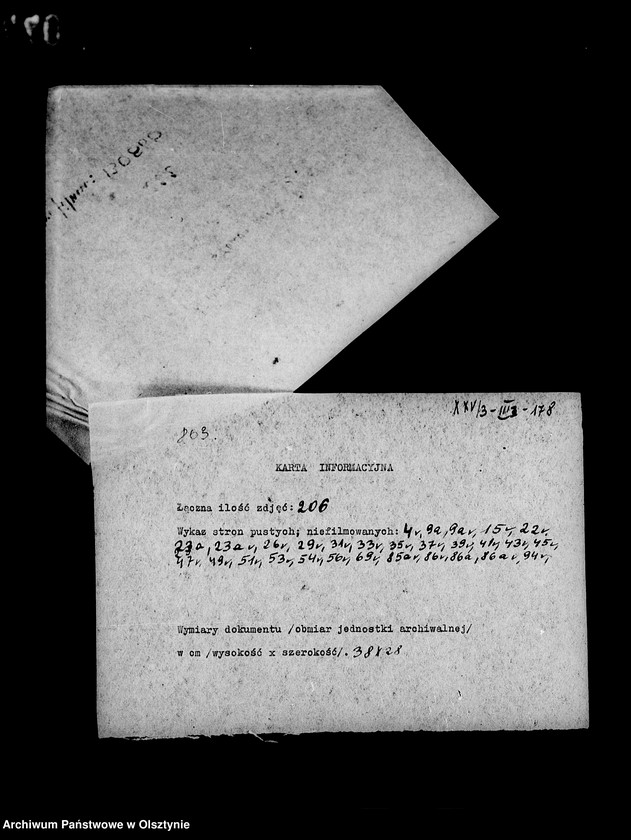 XXV/3-III3-178
803.
KARTA INFORMACYJNA
Łączna ilość zdjęć: 206
Wykaz stron pustych; niefilmowanych: 4v, 9a, 9av, 15v, 22v,
23a, 23av, 26v, 29v, 31v, 33v, 35v, 37v, 39v, 41v, 43v, 45v,
47v, 49v, 51v, 53v, 54v, 56v, 69v, 85av, 86v, 86a, 86av, 94v,
Wymiary dokumentu /obmiar jednostki archiwalnej/
w cm /wysokość x szerokość/. 38x28
Archiwum Państwowe w Olsztynie